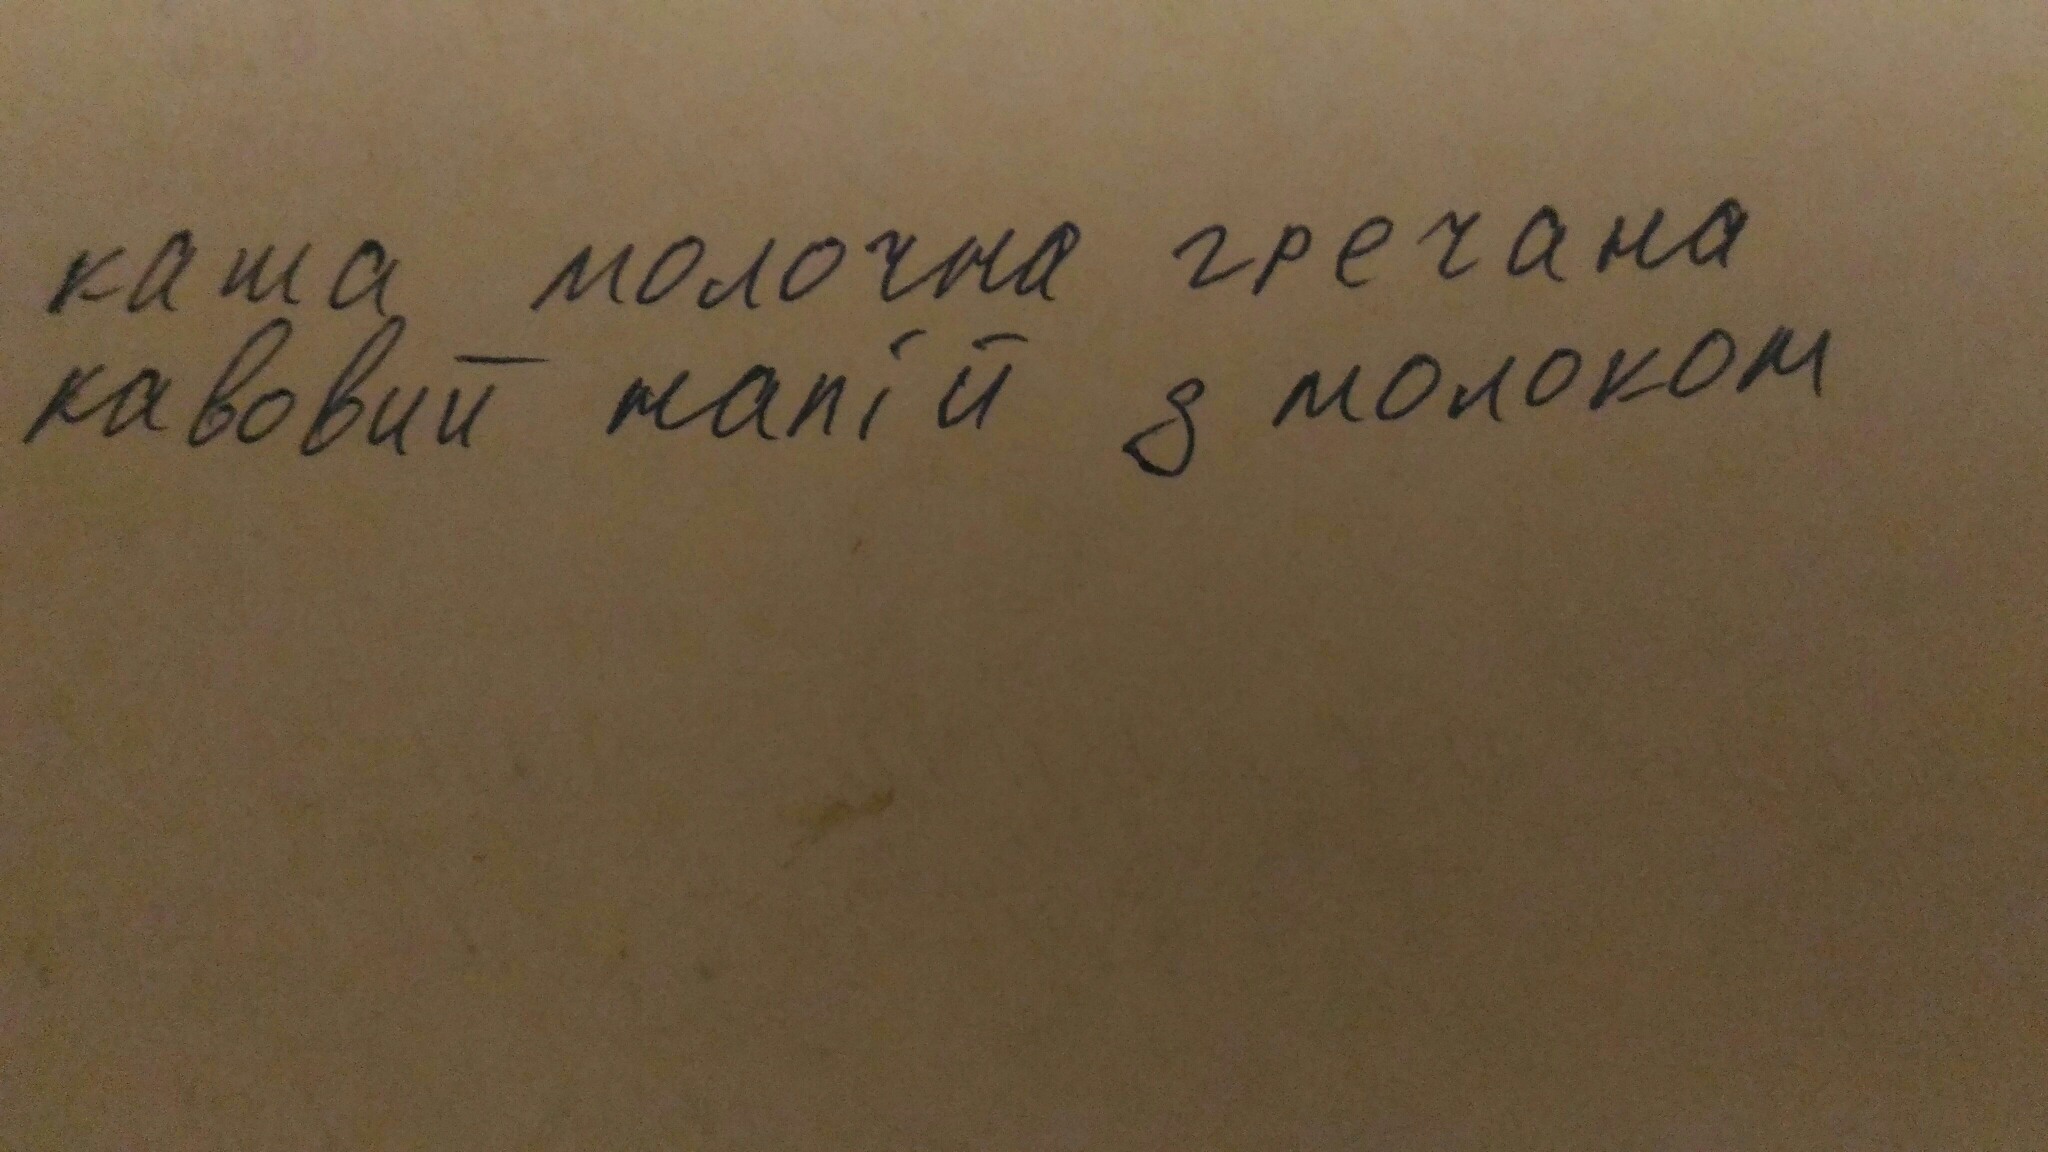 каша молочна гречана
кавовий напій з молоком